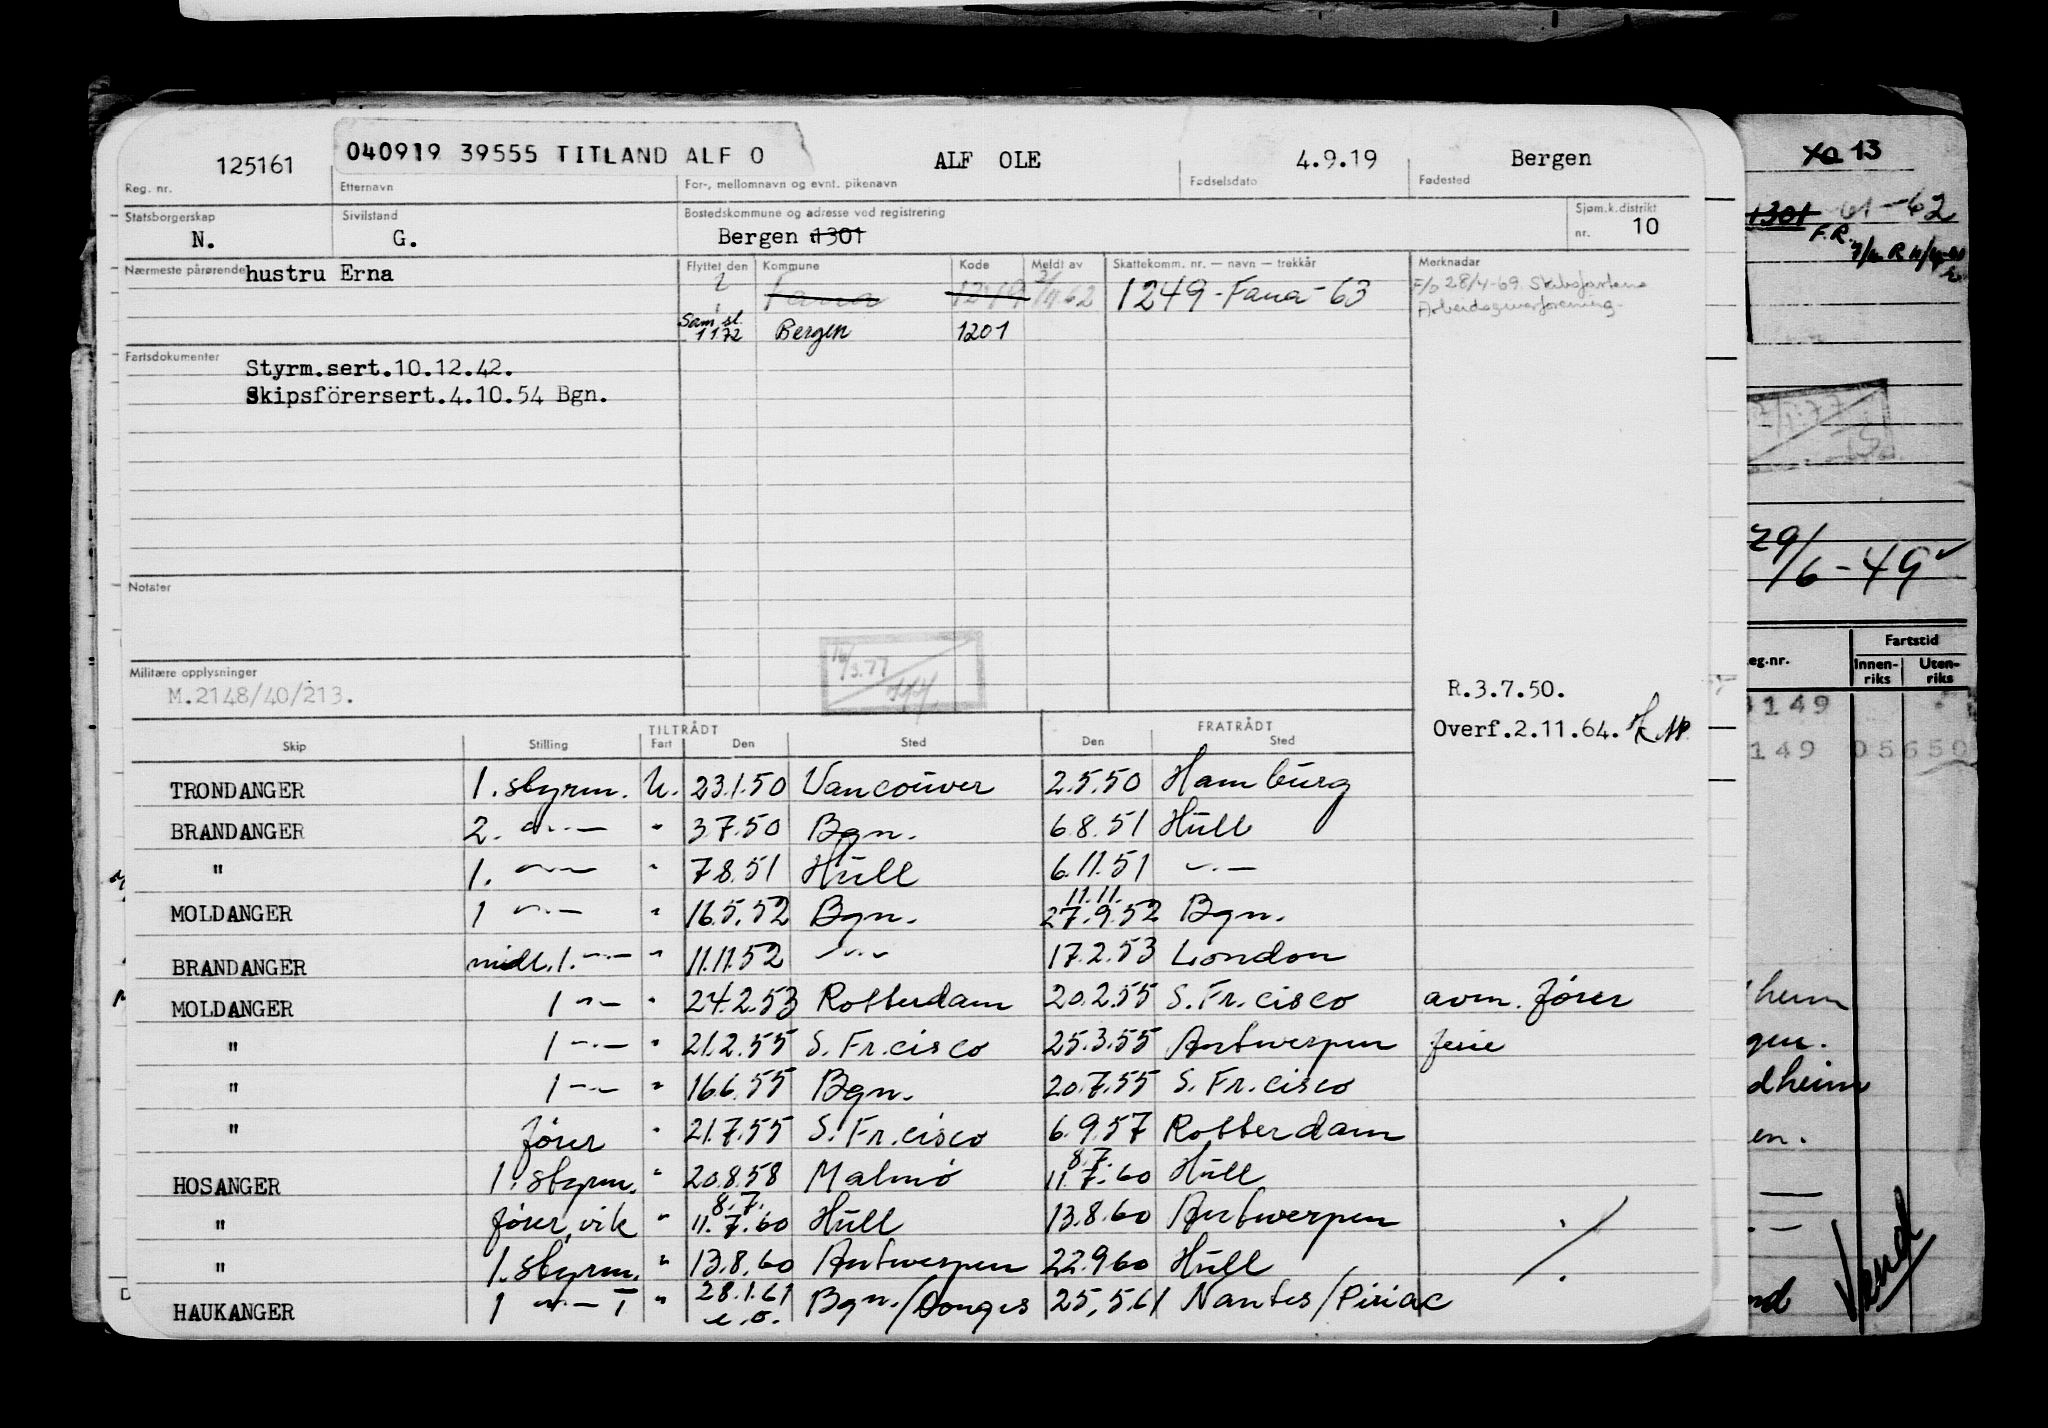 125161 040919 39555 TITLAND ALF O ALF OLE 4.9.19 Bergen
Reg. nr. Etternavn For-, mellomnavn og evnt. pikenavn Fødselsdato Fødested
Statsborgerskap Sivilstand Bostedskommune og adresse ved registrering Sjøm.k.distrikt
N. G. Bergen 1301 nr. 10
Nærmeste pårørende hustru Erna Flyttet den Kommune Kode Meldt av Skattekomm. nr. — navn — trekkår Merknadar
Fana 1249 62 1249-Fana-63 F/o 28/4-69. Skibsfartens
Arbeidsgiverforening.
Sam.sl.
1172 Bergen 1201
Fartsdokumenter
Styrm.sert.10.12.42.
Skipsförersert.4.10.54 Bgn.
Notater
Militære opplysninger
M.2148/40/213.
16/3.77
R.3.7.50.
Overf.2.11.64.
TILTRÅDT FRATRÅDT
Skip Stilling Fart Den Sted Den Sted
TRONDANGER 1. styrm. U. 23.1.50 Vancouver 2.5.50 Hamburg
BRANDANGER 2. -"- " 3.7.50 Bgn. 6.8.51 Hull
" 1. -"- " 7.8.51 Hull 6.11.51 -"-
MOLDANGER 1 -"- " 16.5.52 Bgn. 11.11. 27.9.52 Bgn.
BRANDANGER midl. 1. -"- " 11.11.52 -"- 17.2.53 London
MOLDANGER 1 -"- " 24.2.53 Rotterdam 20.2.55 S. Fr.cisco avm. fører
" 1 -"- " 21.2.55 S. Fr.cisco 25.3.55 Antwerpen ferie
" 1 -"- " 16.6.55 Bgn. 20.7.55 S. Fr.cisco
" fører " 21.7.55 S. Fr.cisco 6.9.57 Rotterdam
HOSANGER 1. styrm. " 20.8.58 Malmø 8.7. 11.7.60 Hull
" fører, vik " 8.7. 11.7.60 Hull 13.8.60 Antwerpen
" 1. styrm. " 13.8.60 Antwerpen 22.9.60 Hull
HAUKANGER 1 -"- T " 28.1.61 e.o. Bgn./Donges 25.5.61 Nantes/Piriac
13
1301 61-62
F.R.
29/6-49
Fartstid
eg.nr. Innen-riks Uten-riks
149
149 05650
heim
gen.
dheim
en.
nd
Vend